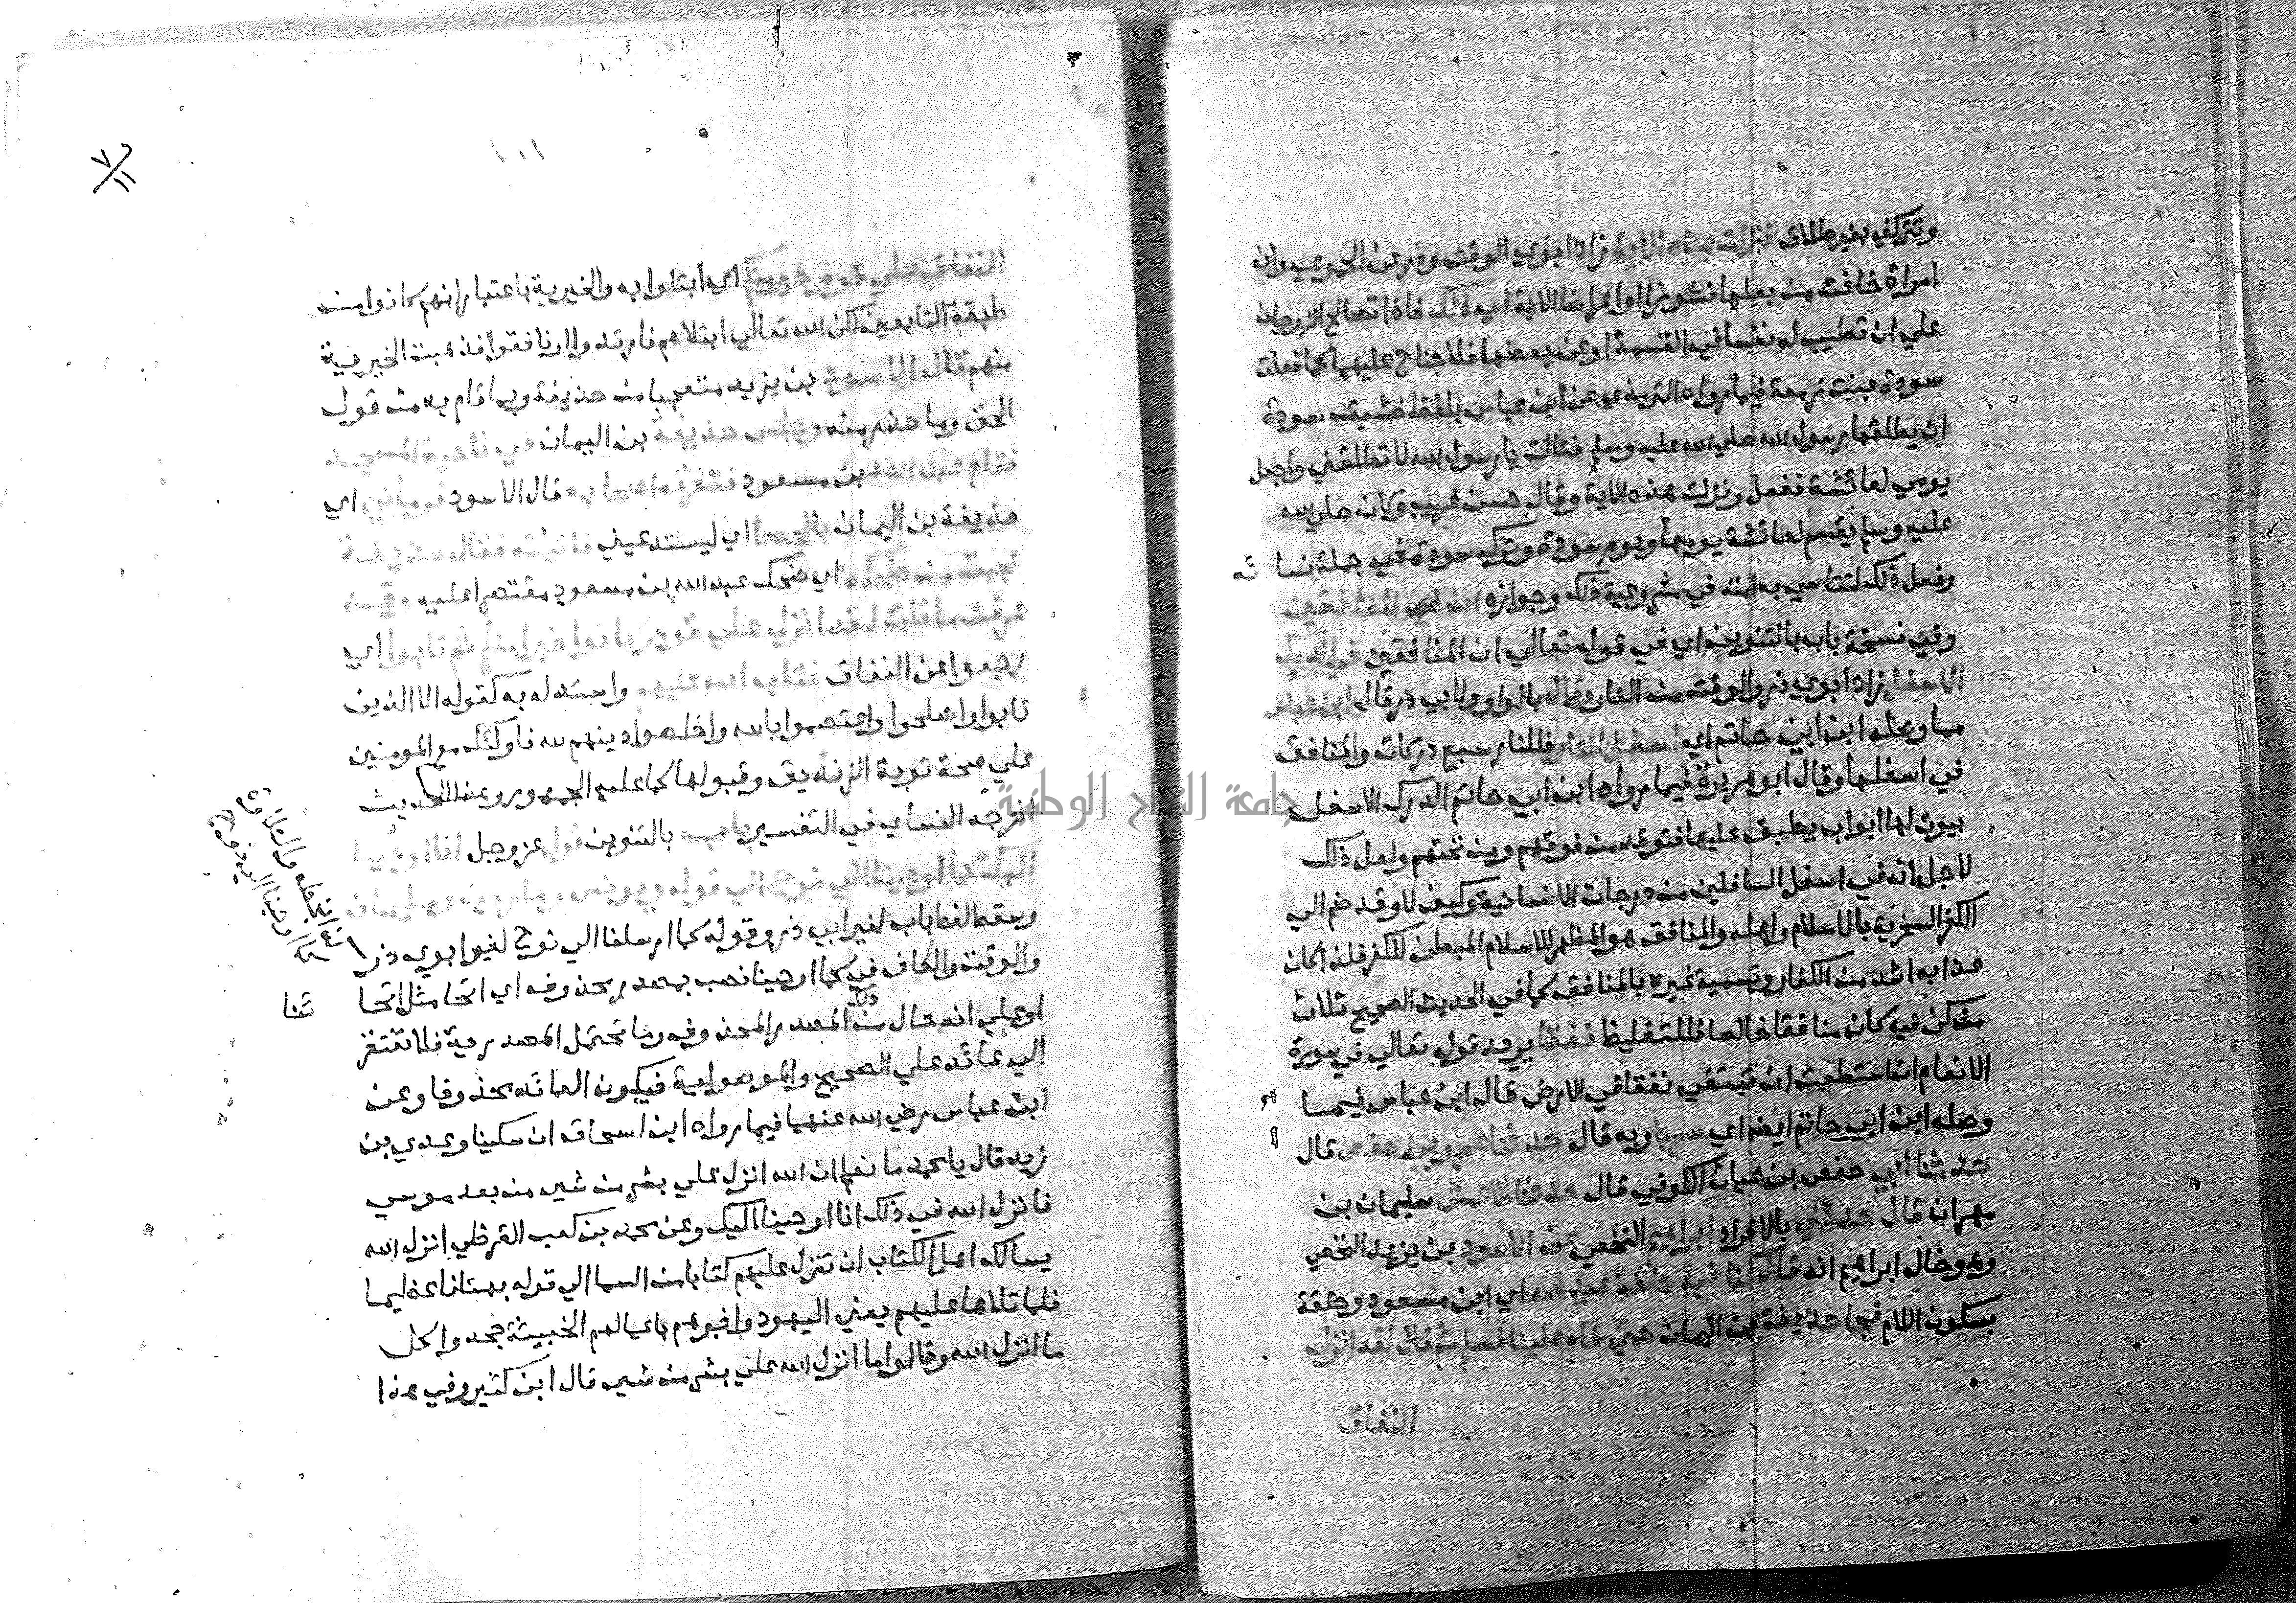 وتتركني بغير طلاق فنزلت هذه الاية زاد ابوي الوقت وذر عن الحموي وان
امراة خافت من بعلها نشوزا او اعراضا الاية في ذلك فاذا تصالح الزوجان
علي ان تطيب له نفسا في القسمة او عن بعضها فلا جناح عليهما كما فعلت
سودة بنت زمعة فيما رواه الترمذي عن ابن عباس بلفظ خشيت سودة
ان يطلقها رسول الله صلي الله عليه وسلم فقالت يا رسول الله لا تطلقني واجعل
يومي لعائشة ففعل ونزلت هذه الاية وقال حسن غريب وكان صلي الله
عليه وسلم يقسم لعائشة يومها ويوم سودة وترك سودة في جملة نسا ئه
وفعل ذلك لتتاسي به امته في مشروعية ذلك وجوازه ان المنافقين
وفي نسخة باب بالتنوين اي في قوله تعالي ان المنافقين في الدرك
الاسفل زاد ابوي ذر والوقت من النار وقال بالواو ولابي ذر قال ابن عباس
مما وصله ابن ابي حاتم اي اسفل النار فللنار سبع دركات والمنافق
في اسفلها وقال ابو هريرة فيما رواه ابن ابي حاتم الدرك الاسفل
بيوت لها ابواب يطبق عليها فتوقد من فوقهم ومن تحتهم ولعل ذلك
لاجل انه في اسفل السافلين من درجات الانسانية وكيف لا وقد ضم الي
الكفر السخرية بالاسلام واهله والمنافق هو المظهر للاسلام المبطن للكفر فلذا كان
عذابه اشد من الكفار وتسمية غيره بالمنافق كما في الحديث الصحيح ثلاث
من كن فيه كان منافقا خالصا فللتغليظ نفقا يريد قوله تعالي في سورة
الانعام ان استطعت ان تبتغي نفقا في الارض قاله ابن عباس فيما
وصله ابن ابي حاتم ايضا اي سربا وبه قال حدثنا عمر بن حفص قال
حدثنا ابي حفص بن غياث الكوفي قال حدثنا الاعمش سليمان بن
مهران قال حدثني بالافراد ابراهيم النخعي عن الاسود بن يزيد النخعي
وهو خال ابراهيم انه قال كنا في حلقة عبد الله اي ابن مسعود وحلقة
بسكون اللام فجا حذيفة بن اليمان حتي قام علينا فسلم ثم قال لقد انزل
النفاق
١٠١
٧/١١
النفاق علي قوم خير منكم اي ابتلوا به والخيرية باعتبار انهم كانوا من
طبقة التابعين لكن الله تعالي ابتلاهم فارتدوا ونافقوا فذهبت الخيرية
منهم قال الاسود بن يزيد متعجبا من حذيفة وبما قام به من قول
الحق وما حذر منه وجلس حذيفة بن اليمان في ناحية المسجد
فقام عبد الله بن مسعود فتفرق اصحابه قال الاسود فرماني اي
حذيفة بن اليمان بالحصا اي ليستدعيني فاتيته فقال حذيفة
عجبت من ضحكه اي ضحك عبد الله بن مسعود مقتصرا عليه وقد
عرفت ما قلت لقد انزل علي قوم كانوا خيرا منكم ثم تابوا اي
رجعوا عن النفاق فتاب الله عليهم واستدل به كقوله الا الذين
تابوا واصلحوا واعتصموا بالله واخلصوا دينهم لله فاولئك مع المومنين
علي صحة توبة الزنديق وقبولها كما عليه الجمهور وهذا الحديث
اخرجه النساي في التفسير باب بالتنوين قوله عز وجل انا اوحينا
اليك كما اوحينا الي نوح الي قوله ويونس وهارون وسليمان
وسقط لفظ باب لغير ابي ذر وقوله كما ارسلنا الي نوح لغير ابوي ذر
والوقت والكاف في كما اوحينا نصب بمصدر محذوف اي ايحا مثل ايحا ئنا
او علي انه حال من ذلك المصدر المحذوف وما تحتمل المصدرية فلا تفتقر
الي عائد علي الصحيح والموصولية فيكون العائد محذوفا وعن
ابن عباس رضي الله عنهما فيما رواه ابن اسحاق ان سكينا وعدي بن
زيد قال يا محمد ما نعلم ان الله انزل علي بشر من شي من بعد موسي
فانزل الله في ذلك انا اوحينا اليك وعن محمد بن كعب القرظي انزل الله
يسالك اهل الكتاب ان تنزل عليهم كتابا من السما الي قوله بهتانا عظيما
فلما تلاها عليهم يعني اليهود واخبرهم باعمالهم الخبيثة جحدوا كل
ما انزل الله وقالوا ما انزل الله علي بشر من شي قال ابن كثير وفي هذا
جامعة النجاح الوطنية